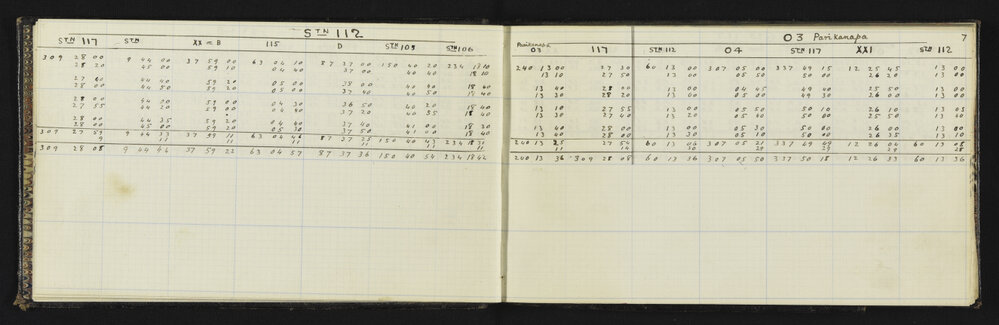 STN 112
STN 117 STN XX = B 115 D STN 105 STN 106
309 28 00 9 44 00 37 59 00 63 04 10 87 37 00 150 40 20 234 18 10
28 20 45 00 59 10 04 40 37 00 40 40 18 10
27 60 44 40 59 20 05 00 38 00 40 40 18 40
28 00 44 50 59 20 05 00 37 40 40 50 18 40
28 00 44 00 59 00 04 30 36 50 40 20 18 40
27 55 44 20 59 00 04 40 37 20 40 35 18 40
28 00 44 35 59 20 04 40 37 40 41 00 18 20
28 00 45 00 59 20 05 30 37 50 41 00 18 40
309 27 59 9 44 33 37 59 11 63 04 46 87 37 25 150 40 43 234 18 31
9 11 11 11 11 11 11
309 28 08 9 44 44 37 59 22 63 04 57 87 37 36 150 40 54 234 18 42
03 Parikanapa 7
Parikanapa
03 117 STN 112 04 STN 117 XXI STN 112
240 13 00 27 30 60 13 00 307 05 00 337 49 15 12 25 45 13 00
13 10 27 50 13 00 05 50 50 00 26 20 13 00
13 40 28 00 13 00 04 45 49 40 25 50 13 00
13 30 28 20 13 00 05 00 49 30 26 00 13 00
13 10 27 55 13 00 05 50 50 10 26 10 13 05
13 30 27 40 13 20 05 50 25 50 13 40
13 40 28 00 13 00 05 30 50 00 26 00 13 00
13 40 28 00 13 10 05 50 50 00 26 35 13 10
240 13 25 27 54 60 13 06 307 05 21 337 49 49 12 26 04 60 13 08
11 14 30 29 29 29 28
240 13 36 309 28 08 60 13 36 307 05 50 337 50 18 12 26 33 60 13 36